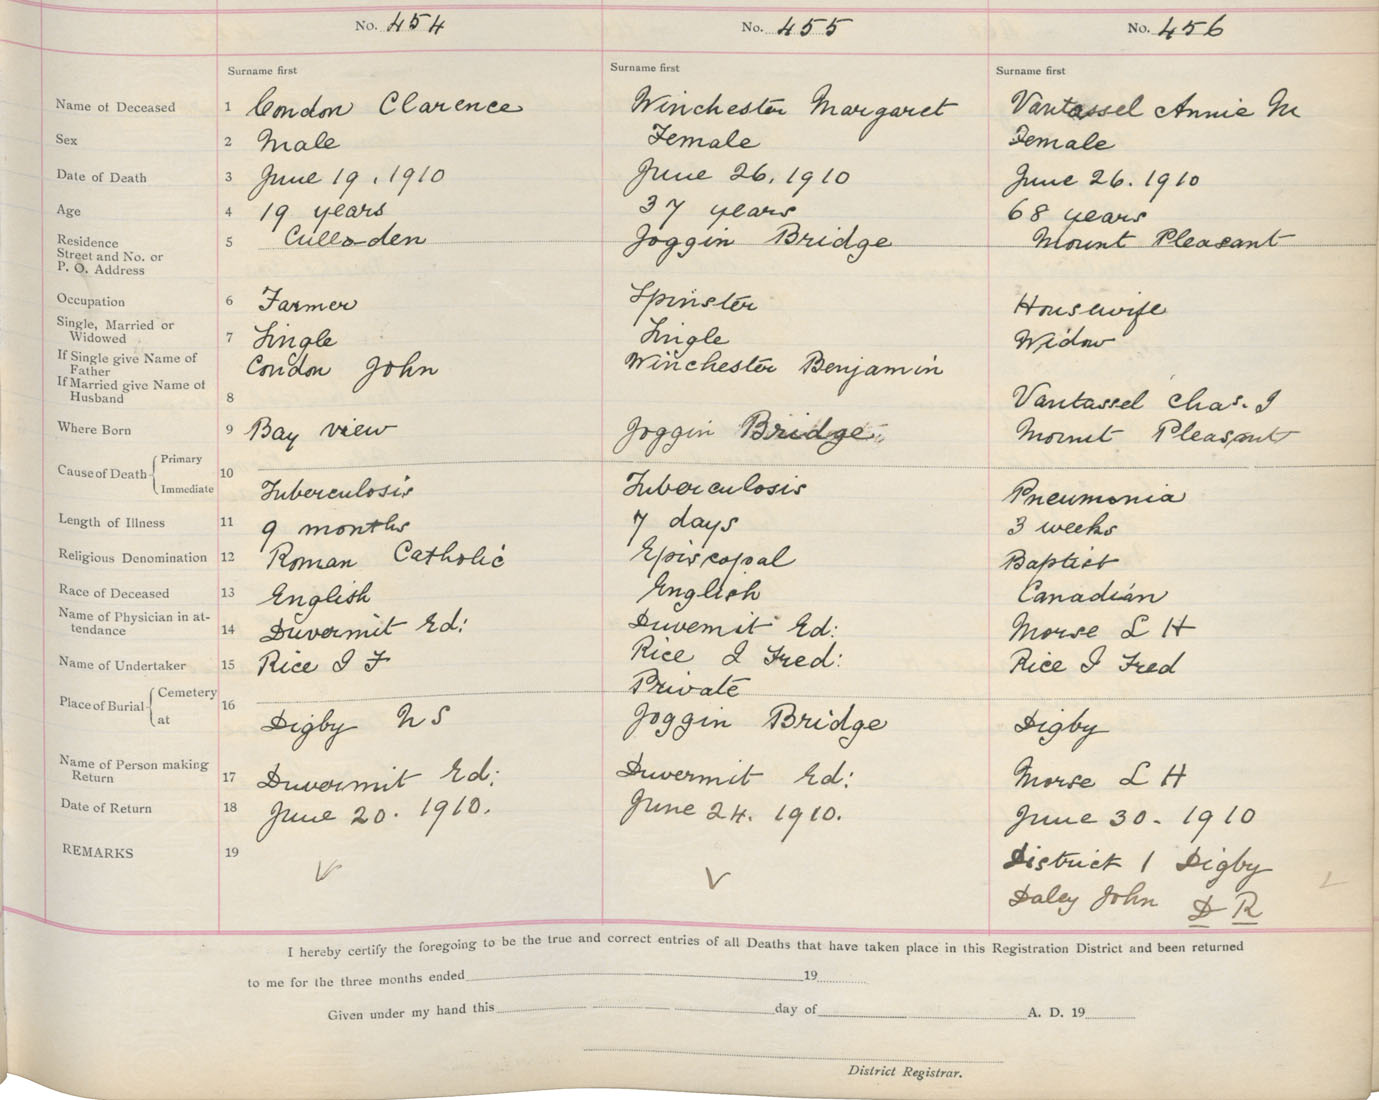 No. 454 No. 455 No. 456
Surname first Surname first Surname first
Name of Deceased 1 Condon Clarence Winchester Margaret Vantassel Annie M
Sex 2 Male Female Female
Date of Death 3 June 19, 1910 June 26, 1910 June 26. 1910
Age 4 19 years 37 years 68 years
Residence 5 Culloden Joggin Bridge Mount Pleasant
Street and No. or
P. O. Address
Occupation 6 Farmer Spinster Housewife
Single, Married or
Widowed 7 Single Single Widow
If Single give Name of
Father Condon John Winchester Benjamin
If Married give Name of
Husband 8 Vantassel Chas. I
Where Born 9 Bay view Joggin Bridge Mount Pleasant
Cause of Death Primary
10
Immediate Tuberculosis Tuberculosis Pneumonia
Length of Illness 11 9 months 7 days 3 weeks
Religious Denomination 12 Roman Catholic Episcopal Baptist
Race of Deceased 13 English English Canadian
Name of Physician in at-
tendance 14 Duvermit Ed: Duvemit Ed: Morse L H
Name of Undertaker 15 Rice I F Rice I Fred: Rice I Fred
Place of Burial Cemetery Private
16
at Digby N S Joggin Bridge Digby
Name of Person making
Return 17 Duvermit Ed: Duvermit Ed: Morse L H
Date of Return 18 June 20. 1910. June 24. 1910. June 30. 1910
REMARKS 19 District 1 Digby
Daley John D R
I hereby certify the foregoing to be the true and correct entries of all Deaths that have taken place in this Registration District and been returned
to me for the three months ended 19
Given under my hand this day of A. D. 19
District Registrar.